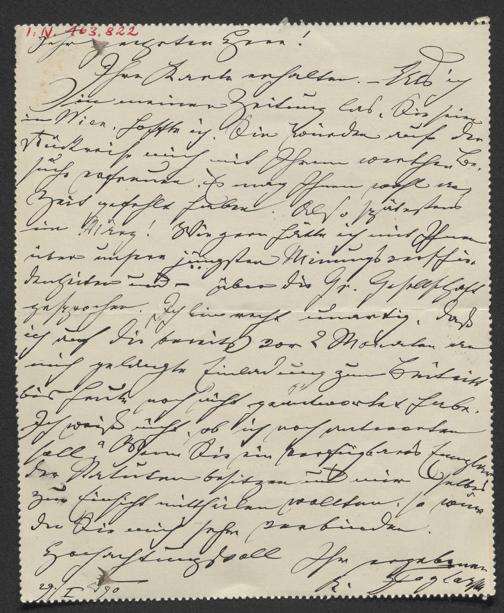 I. N. 463.822
Sehr geehrter Herr!
Ihre Karte erhalten. – Als ich
in meiner Zeitung las, Sie seien
in Wien, hoffte ich, Sie würden auf der
Rückreise mich mit Ihrem werthen Be-
suche erfreuen. Es mag Ihnen wohl an
Zeit gefehlt haben. Also spätestens
im März! Wie gern hätte ich mit Ihnen
über unsere jüngsten Meinungsverschie-
denheiten und – über die Gr. Gesellschaft
gesprochen. Ich bin recht unartig, daß
ich auf die bereits vor 2 Monaten an
mich gelangte Einladung zum Beitritt
bis heute noch nicht geantwortet habe.
Ich weiß nicht, ob ich noch antworten
soll. Wenn Sie ein verfügbares Exemplar
der Statuten besitzen und mir selbes
zur Einsicht mittheilen wollten, so wür-
den Sie mich sehr verbinden.
Hochachtungsvoll Ihr ergebener
29/I 1890